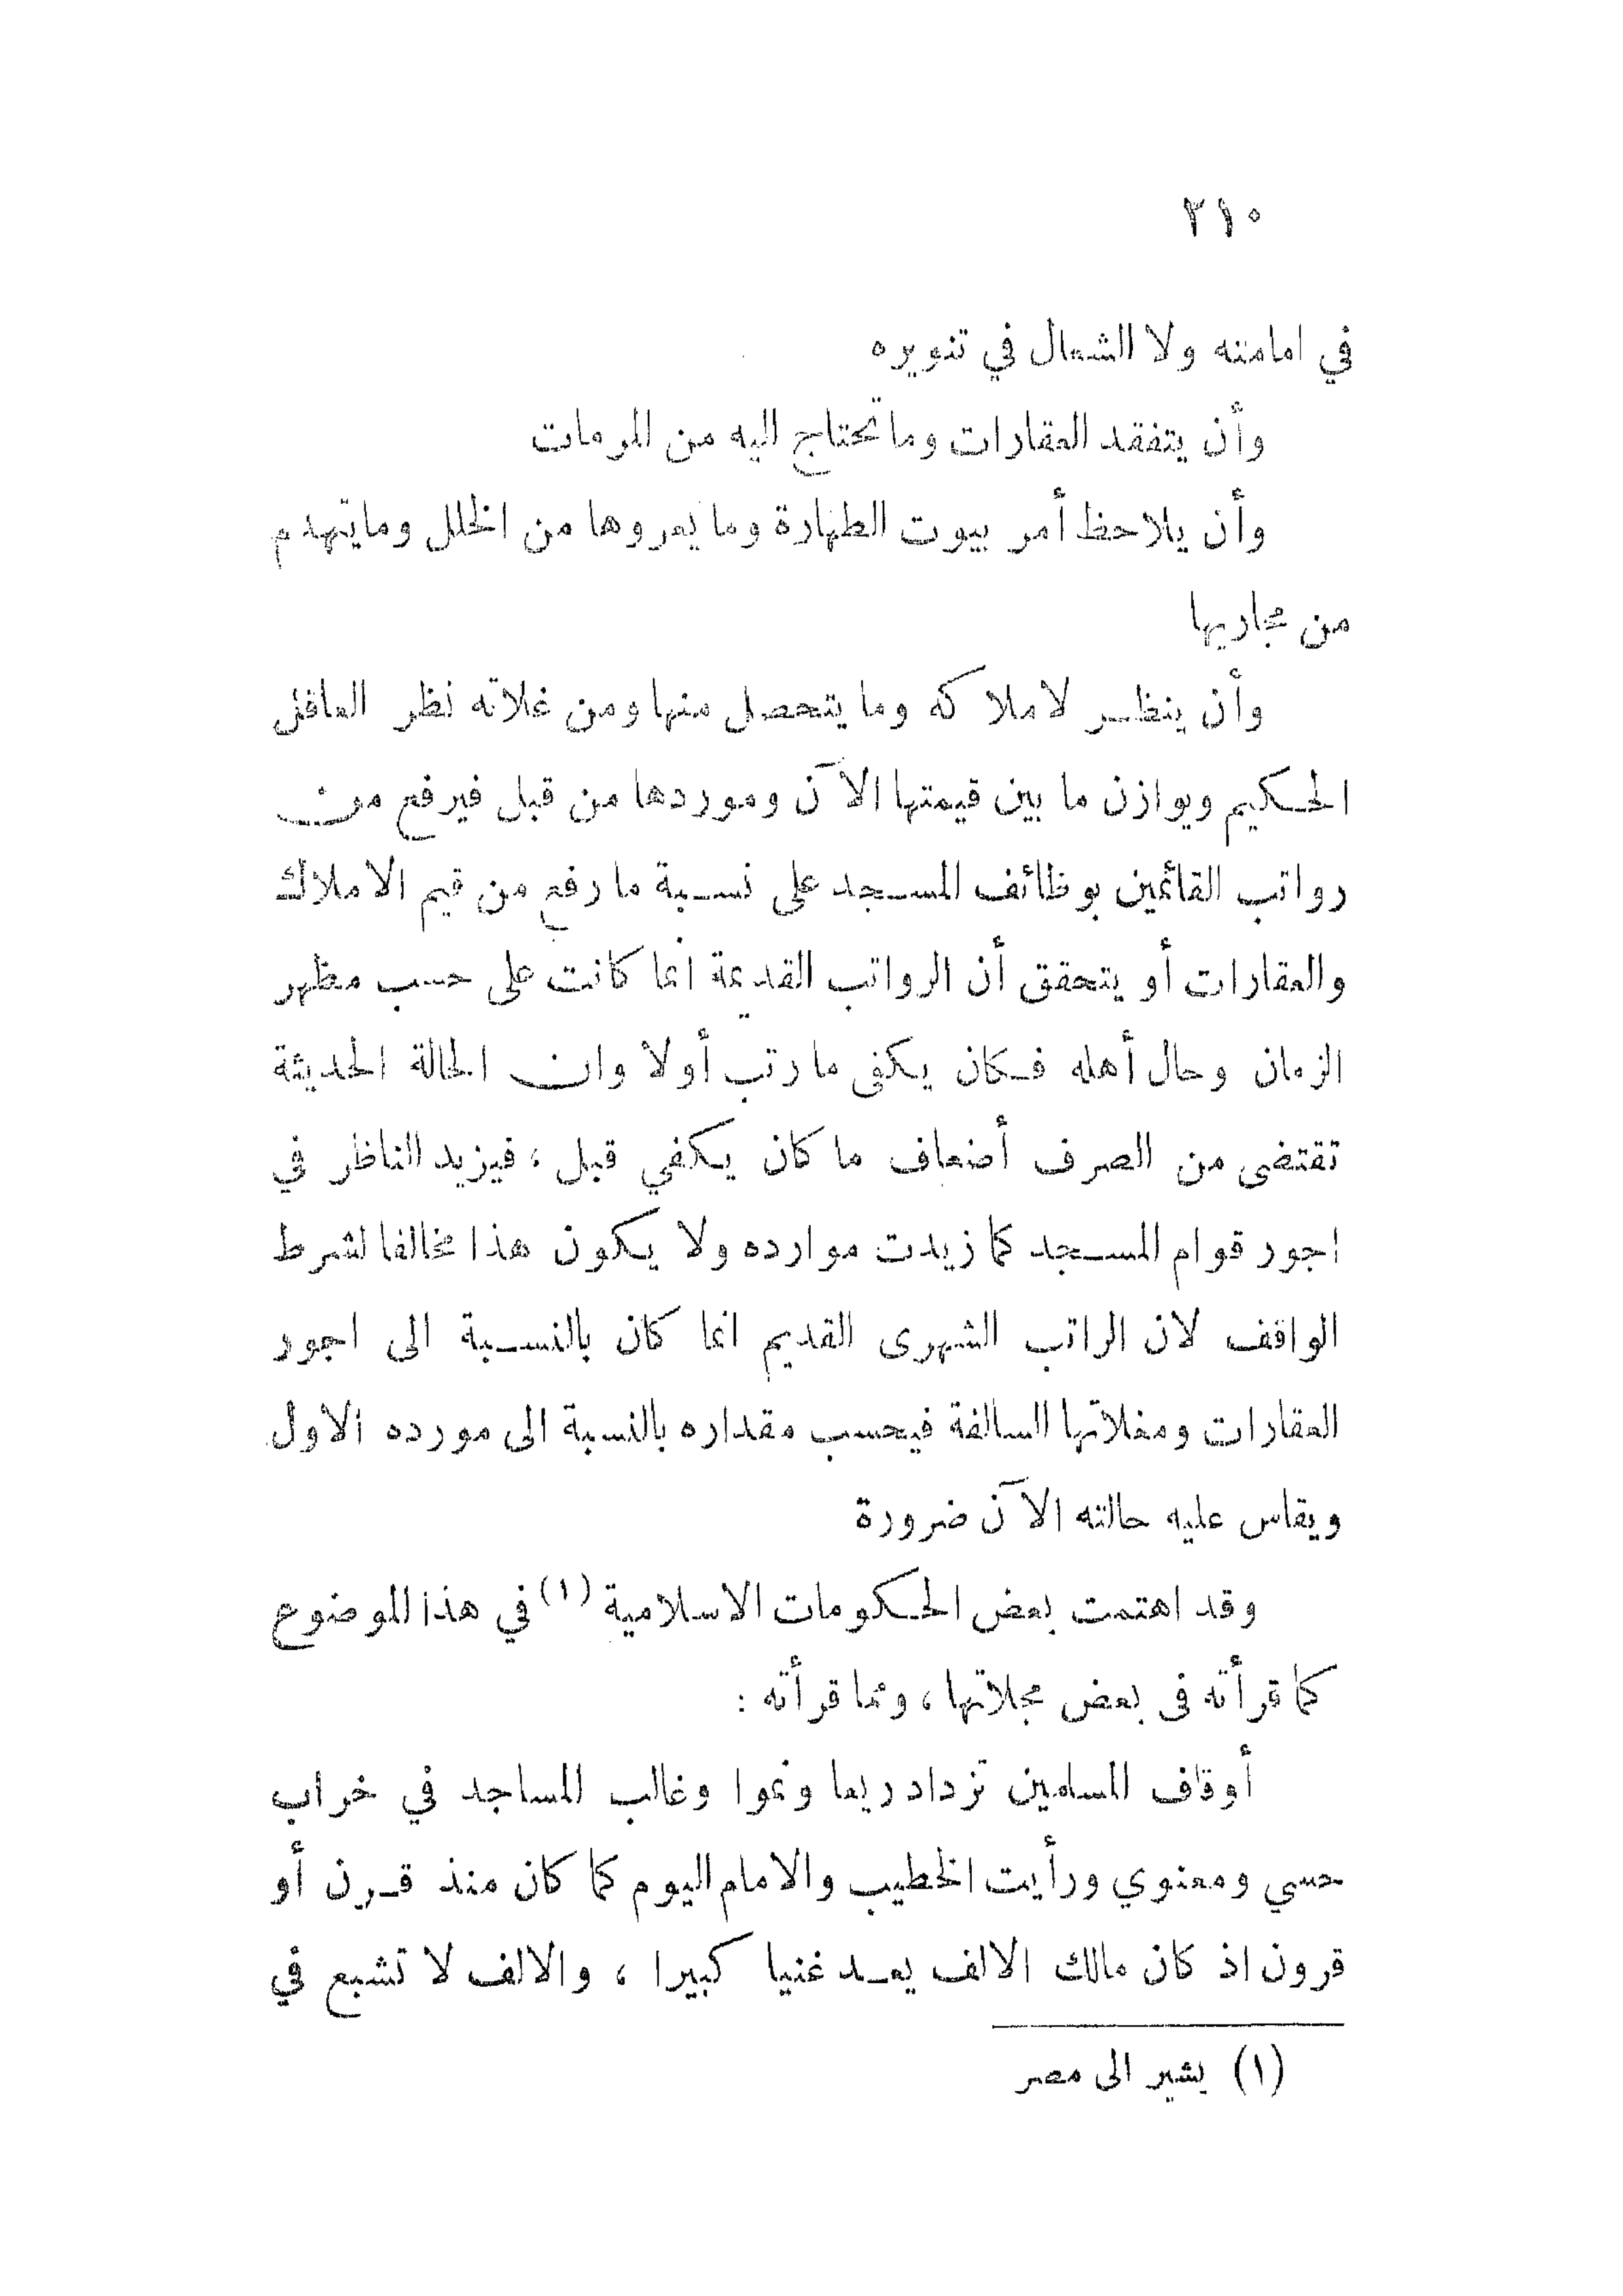 ٢١٠
في امامته ولا الشعال في تنويره
وأن يتفقد العقارات وما تحتاج اليه من المرمات
وأن يلاحظ أمر بيوت الطهارة وما يعروها من الخلل وما يتهدم
من مجاريها
وأن ينظر لاملاكه وما يتحصل منها ومن غلاته نظر العاقل
الحكيم ويوازن ما بين قيمتها الآن وموردها من قبل فيرفع من
رواتب القائمين بوظائف المسجد على نسبة ما رفع من قيم الاملاك
والعقارات أو يتحقق أن الرواتب القديمة انما كانت على حسب مظهر
الزمان وحال أهله فكان يكفى ما رتب أولا وان الحالة الحديثة
تقتضى من الصرف أضعاف ما كان يكفي قبل ، فيزيد الناظر في
اجور قوام المسجد كما زيدت موارده ولا يكون هذا مخالفا لشرط
الواقف لان الراتب الشهرى القديم انما كان بالنسبة الى اجور
العقارات ومغلاتها السالفة فيحسب مقداره بالنسبة الى مورده الاول
ويقاس عليه حالته الآن ضرورة
وقد اهتمت بعض الحكومات الاسلامية (١) في هذا الموضوع
كما قرأته فى بعض مجلاتها ، ومما قرأته :
أوقاف المسلمين تزداد ريعا ونموا وغالب المساجد في خراب
حسي ومعنوي ورأيت الخطيب والامام اليوم كما كان منذ قرن أو
قرون اذ كان مالك الالف يعد غنيا كبيرا ، والالف لا تشبع في
(١) يشير الى مصر